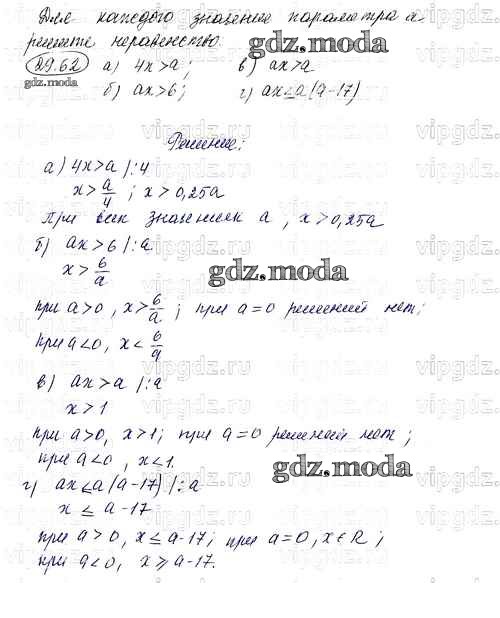 Для каждого значения параметра а
решите неравенство
gdz.moda
29.62 а) 4x>a; в) ax>a
gdz.moda
б) ax>6; г) ax≤a(a-17)
Решение:
а) 4x>a |:4
x>a/4; x>0,25a
При всех значениях a, x>0,25a
б) ax>6 |:a
x>6/a
gdz.moda
при a>0, x>6/a; при a=0 решений нет;
при a<0, x<6/a
в) ax>a |:a
x>1
при a>0, x>1; при a=0 решений нет;
при a<0, x<1.
gdz.moda
г) ax≤a(a-17) |:a
x≤a-17
при a>0, x≤a-17; при a=0, x∈R;
при a<0, x≥a-17.